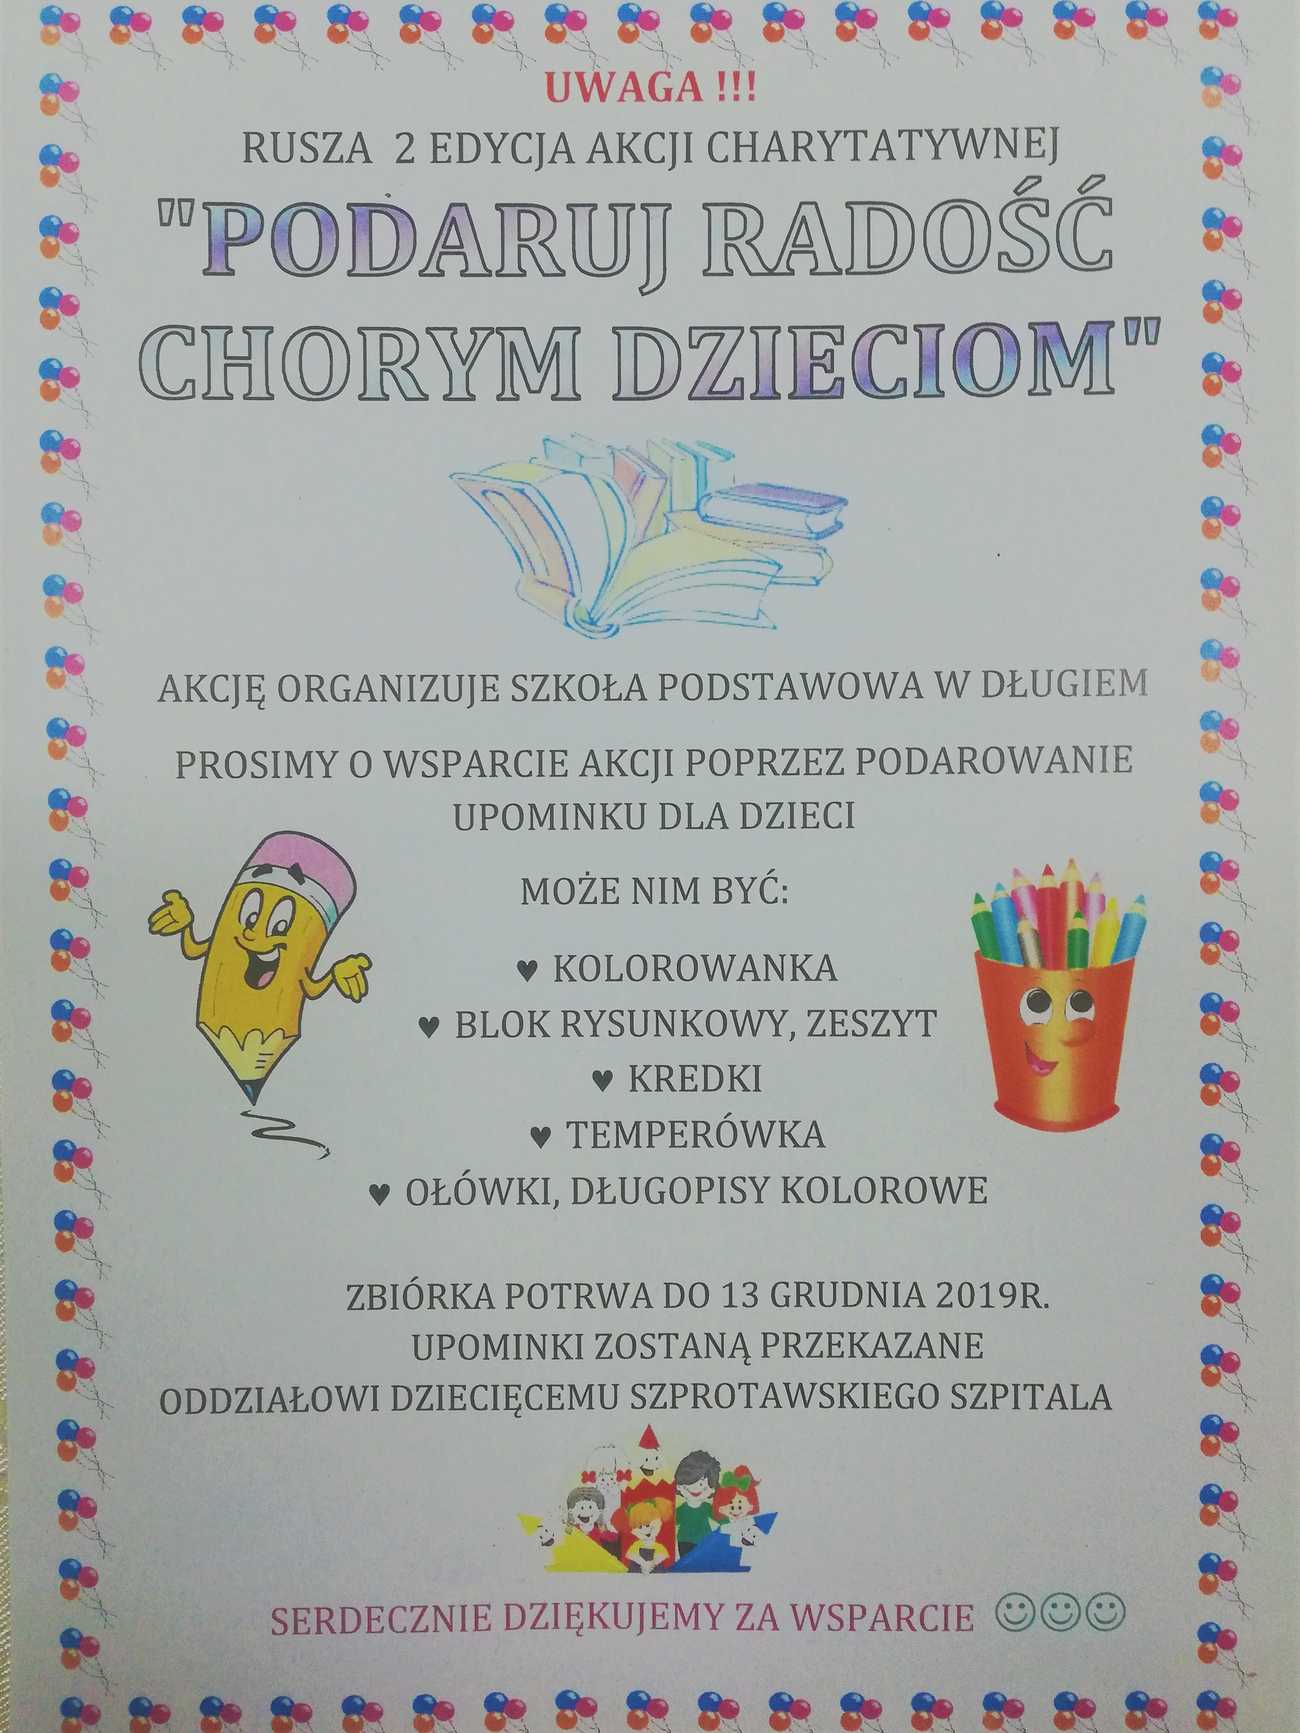 UWAGA !!!
RUSZA 2 EDYCJA AKCJI CHARYTATYWNEJ
"PODARUJ RADOŚĆ
CHORYM DZIECIOM"
AKCJĘ ORGANIZUJE SZKOŁA PODSTAWOWA W DŁUGIEM
PROSIMY O WSPARCIE AKCJI POPRZEZ PODAROWANIE
UPOMINKU DLA DZIECI
MOŻE NIM BYĆ:
♥ KOLOROWANKA
♥ BLOK RYSUNKOWY, ZESZYT
♥ KREDKI
♥ TEMPERÓWKA
♥ OŁÓWKI, DŁUGOPISY KOLOROWE
ZBIÓRKA POTRWA DO 13 GRUDNIA 2019R.
UPOMINKI ZOSTANĄ PRZEKAZANE
ODDZIAŁOWI DZIECIĘCEMU SZPROTAWSKIEGO SZPITALA
SERDECZNIE DZIĘKUJEMY ZA WSPARCIE ☺☺☺